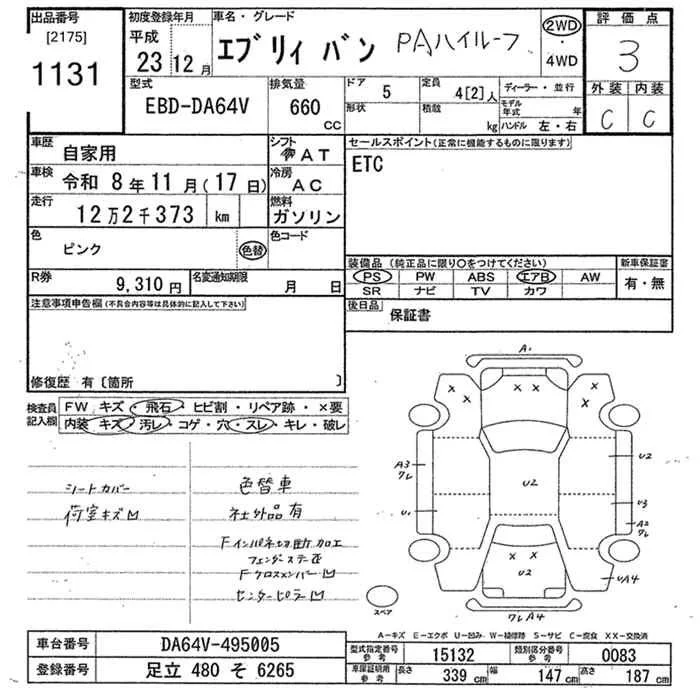 出品番号
[2175]
1131
初度登録年月
平成
23年12月
車名・グレード
エブリィ バン PAハイルーフ
2WD
・
4WD
評価点
3
外装 内装
C C
型式
EBD-DA64V
排気量
660
CC
ドア
5
形状
定員
4[2]人
積載
kg
ディーラー・並行
モデル年式 年
ハンドル 左・右
車歴
自家用
シフト
AT
車検
令和 8年11月(17日)
冷房
AC
走行
12万2千373 km
燃料
ガソリン
色
ピンク
色替
色コード
R券
9,310円
名変通知期限
月 日
セールスポイント(正常に機能するものに限ります)
ETC
装備品 (純正品に限り○をつけてください)
PS PW ABS エアB AW
SR ナビ TV カワ
新車保証書
有・無
後日品
保証書
注意事項申告欄 (不具合内容等は具体的に記入して下さい)
修復歴 有〔箇所 〕
検査員記入欄
FW キズ・飛石・ヒビ割・リペア跡・×要
内装 キズ・汚レ・コゲ・穴・スレ・キレ・破レ
シートカバー
荷室キズ凹
色替車
社外品有
Fインパネ切断加工
フェンダーステー歪
Fクロスメンバー凹
センターピラー凹
A1
X X
X X
X X
A3
ワレ
U2
U2
U1
U3
A2
ワレ
X X
U2
UA4
ワレA4
スペア
A-キズ E-エクボ U-凹み W-補修跡 S-サビ C-腐食 XX-交換済
車台番号
DA64V-495005
登録番号
足立 480 そ 6265
型式指定番号
参考
15132
類別区分番号
参考
0083
車庫証明用
参考
長さ
339 cm
幅
147 cm
高さ
187 cm